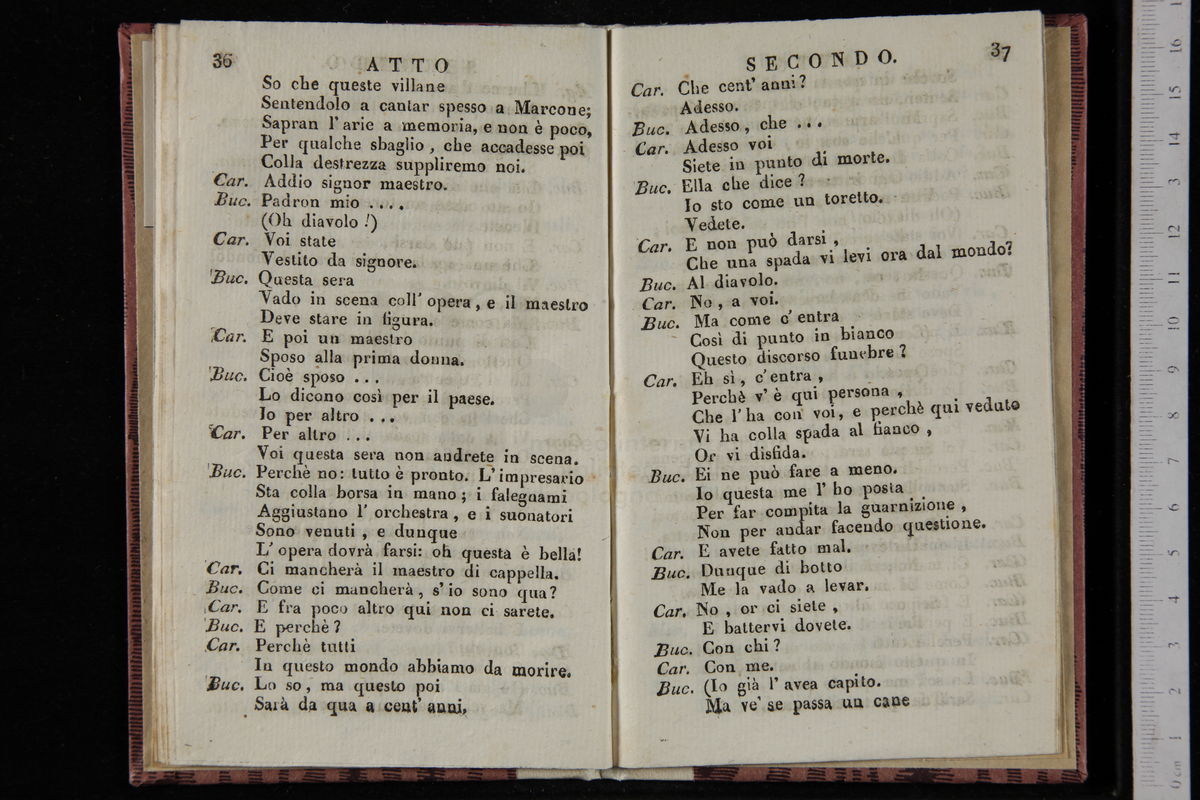 36
ATTO
So che queste villane
Sentendolo a cantar spesso a Marcone;
Sapran l'arie a memoria, e non è poco,
Per qualche sbaglio, che accadesse poi
Colla destrezza suppliremo noi.
Car. Addio signor maestro.
Buc. Padron mio ....
(Oh diavolo!)
Car. Voi state
Vestito da signore.
Buc. Questa sera
Vado in scena coll'opera, e il maestro
Deve stare in figura.
Car. E poi un maestro
Sposo alla prima donna.
Buc. Cioè sposo ...
Lo dicono così per il paese.
Io per altro ...
Car. Per altro ...
Voi questa sera non andrete in scena.
Buc. Perchè no: tutto è pronto. L'impresario
Sta colla borsa in mano; i falegnami
Aggiustano l'orchestra, e i suonatori
Sono venuti, e dunque
L'opera dovrà farsi: oh questa è bella!
Car. Ci mancherà il maestro di cappella.
Buc. Come ci mancherà, s'io sono qua?
Car. E fra poco altro qui non ci sarete.
Buc. E perchè?
Car. Perchè tutti
In questo mondo abbiamo da morire.
Buc. Lo so, ma questo poi
Sarà da qua a cent'anni,
SECONDO.
37
Car. Che cent'anni?
Adesso.
Buc. Adesso, che ...
Car. Adesso voi
Siete in punto di morte.
Buc. Ella che dice?
Io sto come un toretto.
Vedete.
Car. E non può darsi,
Che una spada vi levi ora dal mondo?
Buc. Al diavolo.
Car. No, a voi.
Buc. Ma come c'entra
Così di punto in bianco
Questo discorso funebre?
Car. Eh sì, c'entra,
Perchè v'è qui persona,
Che l'ha con voi, e perchè qui veduto
Vi ha colla spada al fianco,
Or vi disfida.
Buc. Ei ne può fare a meno.
Io questa me l'ho posta
Per far compita la guarnizione,
Non per andar facendo questione.
Car. E avete fatto mal.
Buc. Dunque di botto
Me la vado a levar.
Car. No, or ci siete,
E battervi dovete.
Buc. Con chi?
Car. Con me.
Buc. (Io già l'avea capito.
Ma ve' se passa un cane
0 cm 1 2 3 4 5 6 7 8 9 10 11 12 13 14 15 16